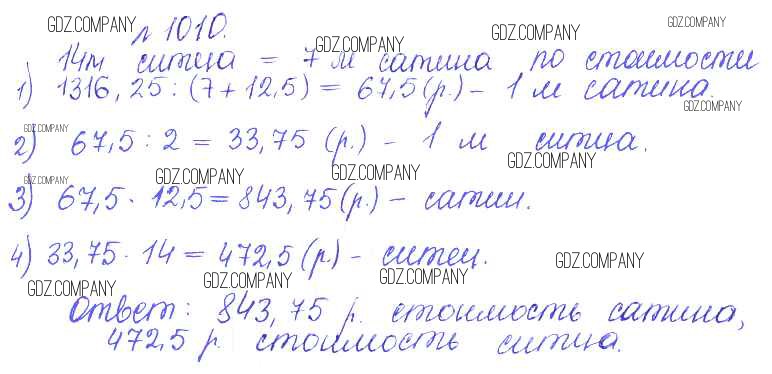 № 1010.
14м ситца = 7 м сатина по стоимости
1) 1316,25 : (7 + 12,5) = 67,5 (р.) – 1 м сатина.
2) 67,5 : 2 = 33,75 (р.) – 1 м ситца.
3) 67,5 · 12,5 = 843,75 (р.) – сатин.
4) 33,75 · 14 = 472,5 (р.) – ситец.
Ответ: 843,75 р. стоимость сатина,
472,5 р. стоимость ситца.
GDZ.COMPANY
GDZ.COMPANY
GDZ.COMPANY
GDZ.COMPANY
GDZ.COMPANY
GDZ.COMPANY
GDZ.COMPANY
GDZ.COMPANY
GDZ.COMPANY
GDZ.COMPANY
GDZ.COMPANY
GDZ.COMPANY
GDZ.COMPANY
GDZ.COMPANY